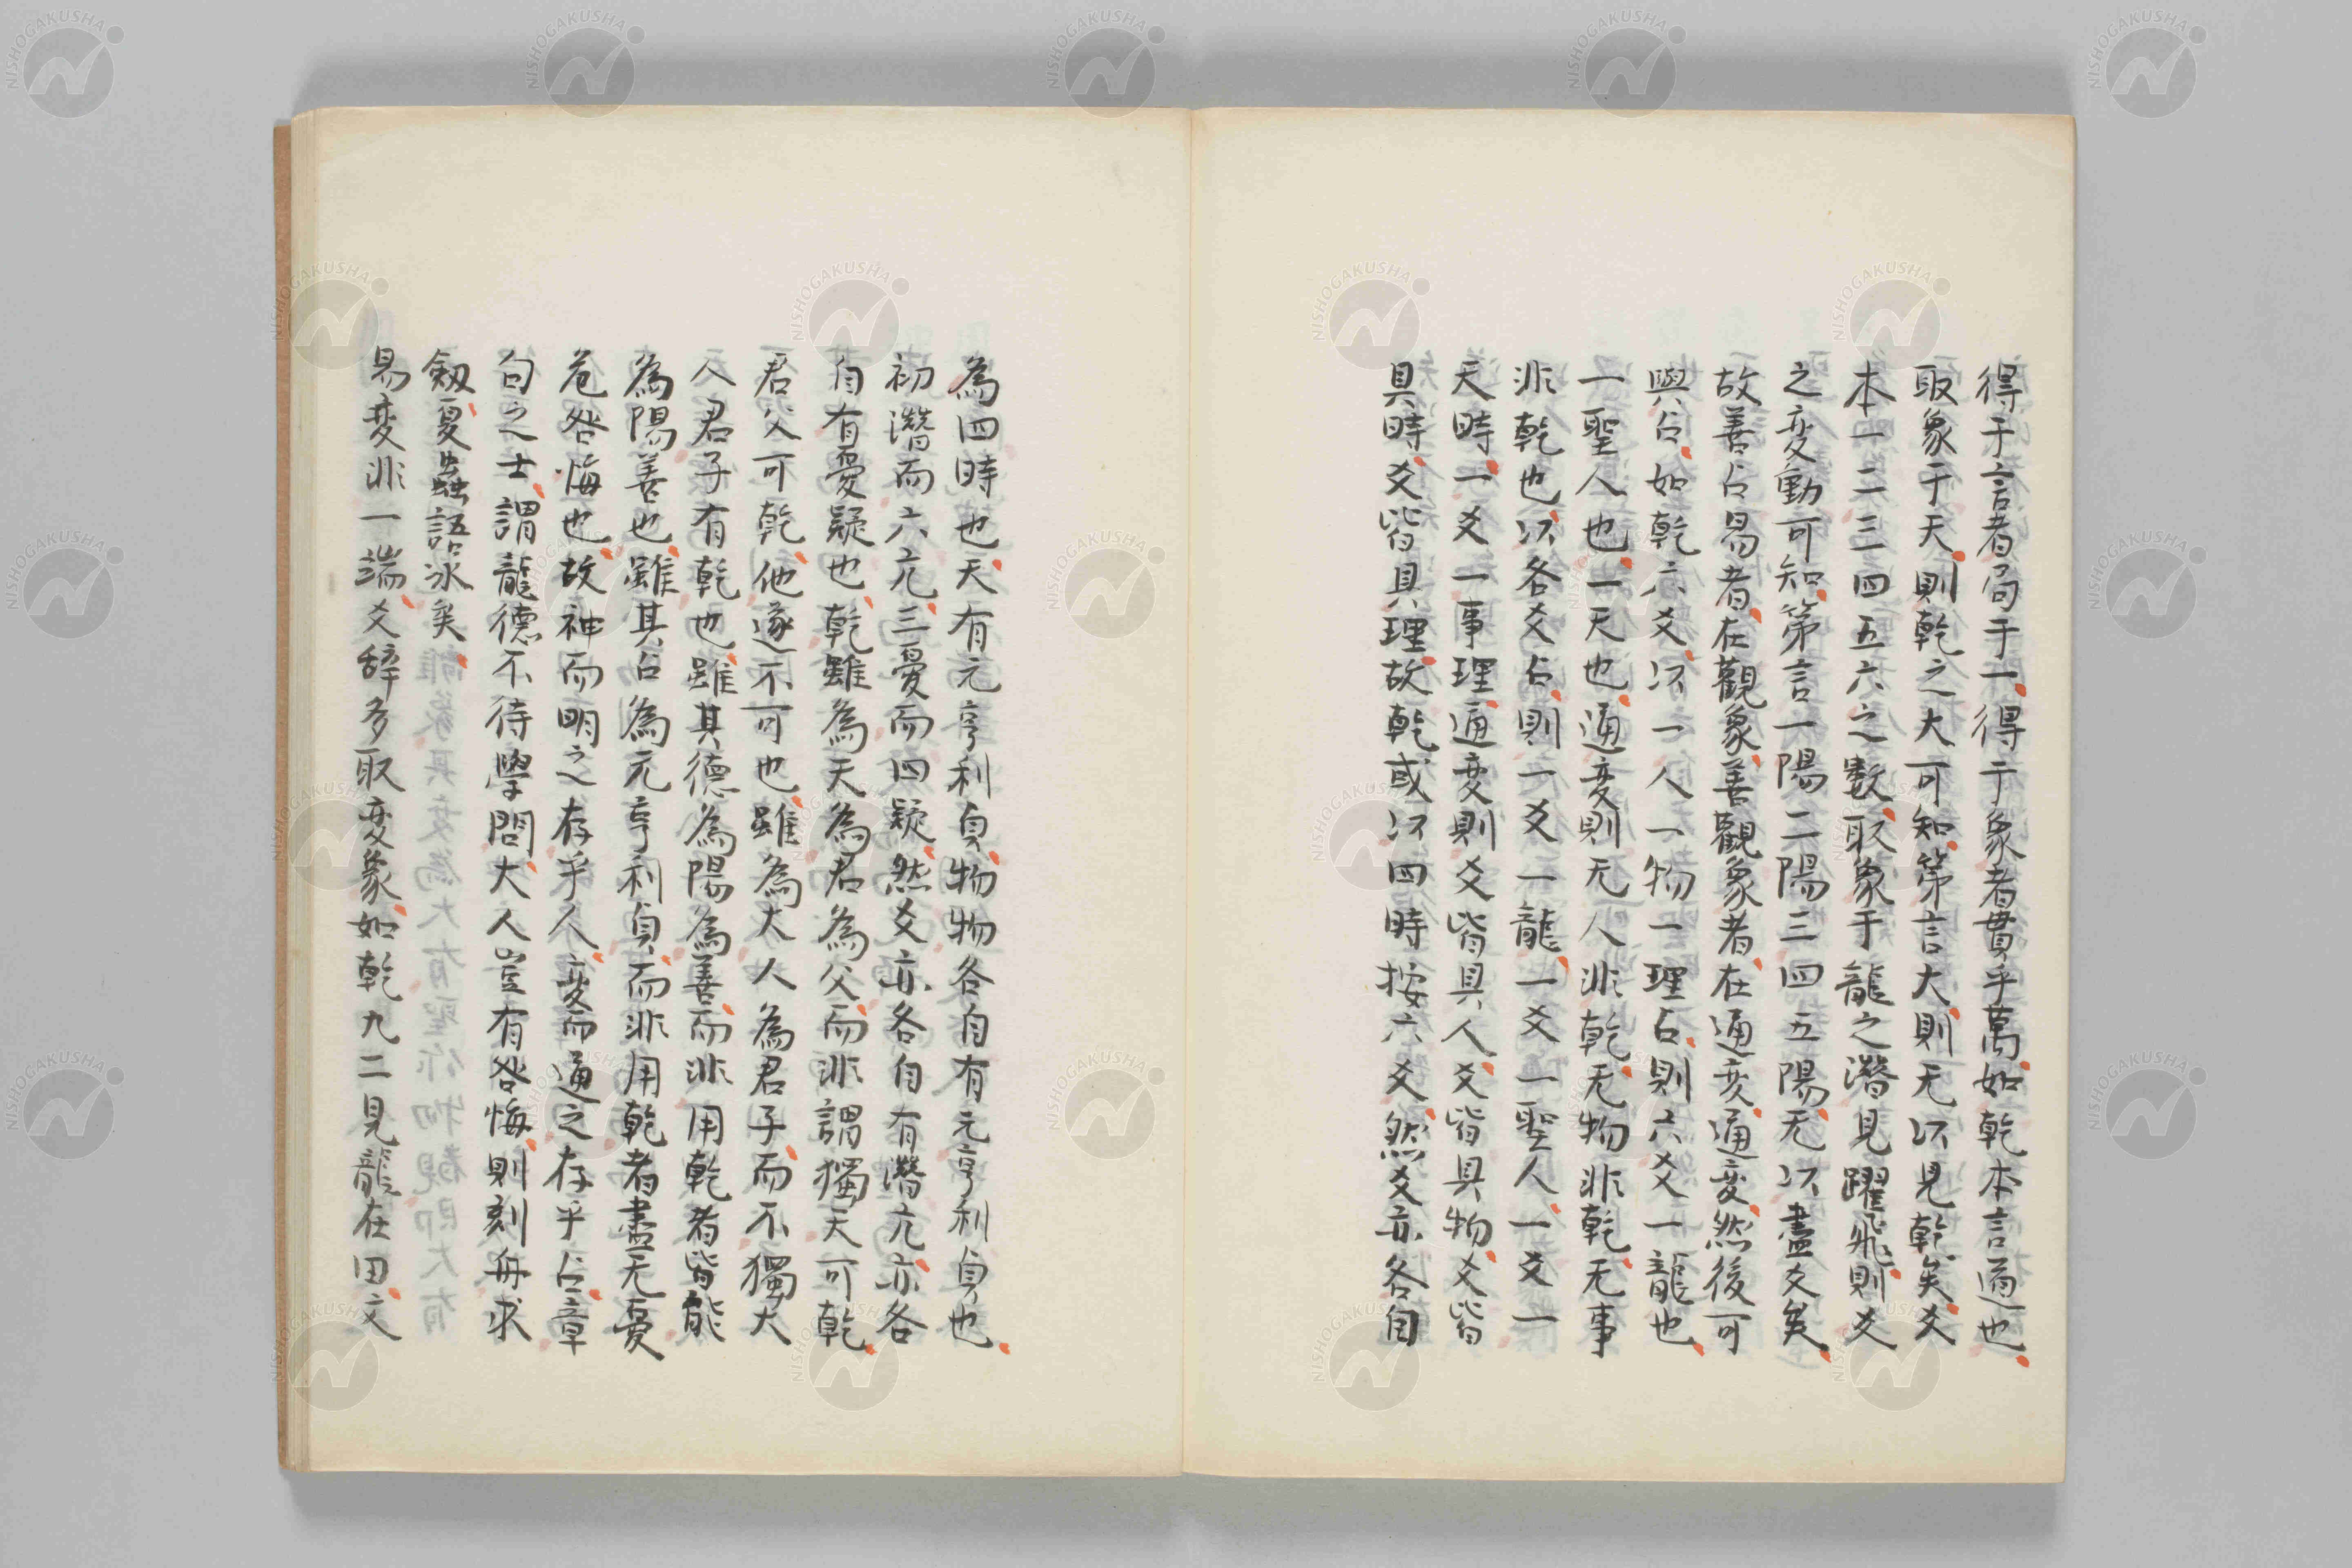 得于言者局于一得于象者貫乎萬如乾本言適也
取象于天則乾之大可知第言大則无以見乾矣爻
本一二三四五六之數取象于龍之潛見躍飛則爻
之変動可知第言一陽二陽三四五陽无以盡爻矣
故善占易者在觀象善觀象者在通変通変然後可
與占如乾六爻以一人一物一理占則六爻一龍也
一聖人也一天也通変則无人非乾无物非乾无事
非乾也以各爻占則一爻一龍一爻一聖人一爻一
天時一爻一事理通変則爻皆具人爻皆具物爻皆
具時爻皆具理故乾或以四時按六爻然爻亦各自
為四時也天有元亨利貞物物各自有元亨利貞也
初潛而六亢三憂而四疑然爻亦各自有潛亢亦各
自有憂疑也乾雖為天為君為父而非謂獨天可乾
君父可乾他遂不可也雖為大人為君子而不獨大
人君子有乾也雖其德為陽為善而非用乾者皆能
為陽善也雖其占為元亨利貞而非用乾者盡无憂
危咎悔也故神而明之存乎人変而通之存乎占章
句之士謂龍德不待學問大人豈有咎悔則刻舟求
劔夏蟲語冰矣
易変非一端爻辞多取変象如乾九二見龍在田文
NISHOGAKUSHA